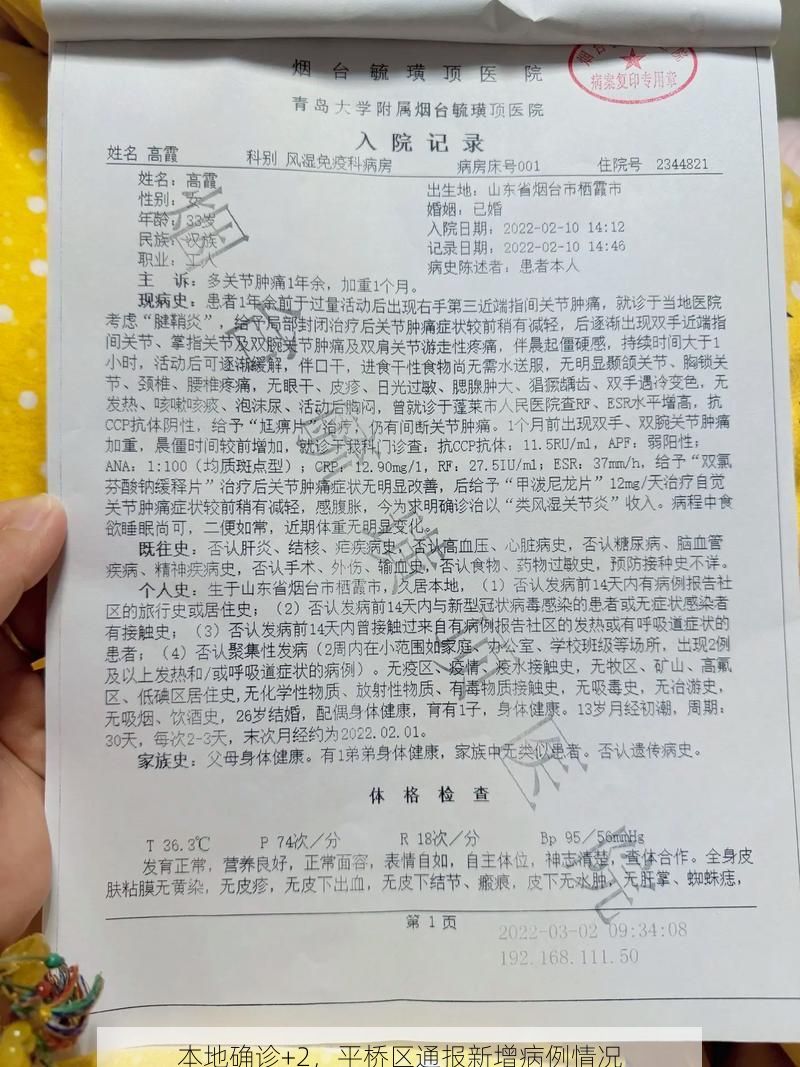 病案复印专用章
烟台毓璜顶医院
青岛大学附属烟台毓璜顶医院
入院记录
姓名 高霞 科别 风湿免疫科病房 病房床号001 住院号 2344821
姓名：高霞 出生地：山东省烟台市栖霞市
性别：女 婚姻：已婚
年龄：33岁 入院日期：2022-02-10 14:12
民族：汉族 记录日期：2022-02-10 14:46
职业：工人 病史陈述者：患者本人
主 诉：多关节肿痛1年余，加重1个月。
现病史：患者1年余前于过量活动后出现右手第三近端指间关节肿痛，就诊于当地医院
考虑“腱鞘炎”，给予局部封闭治疗后关节肿痛症状较前稍有减轻，后逐渐出现双手近端指
间关节、掌指关节及双腕关节肿痛及双肩关节游走性疼痛，伴晨起僵硬感，持续时间大于1
小时，活动后可逐渐缓解，伴口干，进食干性食物尚无需水送服，无明显颞颌关节、胸锁关
节、颈椎、腰椎疼痛，无眼干、皮疹、日光过敏、腮腺肿大、猖獗龋齿、双手遇冷变色，无
发热、咳嗽咳痰、泡沫尿、活动后胸闷，曾就诊于蓬莱市人民医院查RF、ESR水平增高，抗
CCP抗体阴性，给予“尪痹片”治疗，仍有间断关节肿痛。1个月前出现双手、双腕关节肿痛
加重，晨僵时间较前增加，就诊于我科门诊查：抗CCP抗体：11.5RU/ml，APF：弱阳性；
ANA：1:100（均质斑点型）；CRP：12.90mg/l，RF：27.5IU/ml；ESR：37mm/h，给予“双氯
芬酸钠缓释片”治疗后关节肿痛症状无明显改善，后给予“甲泼尼龙片”12mg/天治疗自觉
关节肿痛症状较前稍有减轻，感腹胀，今为求明确诊治以“类风湿关节炎”收入。病程中食
欲睡眠尚可，二便如常，近期体重无明显变化。
既往史：否认肝炎、结核、疟疾病史，否认高血压、心脏病史，否认糖尿病、脑血管
疾病、精神疾病史，否认手术、外伤、输血史，否认食物、药物过敏史，预防接种史不详。
个人史：生于山东省烟台市栖霞市，久居本地，（1）否认发病前14天内有病例报告社
区的旅行史或居住史；（2）否认发病前14天内与新型冠状病毒感染的患者或无症状感染者
有接触史；（3）否认发病前14天内曾接触过来自有病例报告社区的发热或有呼吸道症状的
患者；（4）否认聚集性发病（2周内在小范围如家庭、办公室、学校班级等场所，出现2例
及以上发热和/或呼吸道症状的病例）。无疫区、疫情、疫水接触史，无牧区、矿山、高氟
区、低碘区居住史，无化学性物质、放射性物质、有毒物质接触史，无吸毒史，无冶游史，
无吸烟、饮酒史，26岁结婚，配偶身体健康，育有1子，身体健康。13岁月经初潮，周期：
30天，每次2-3天，末次月经约为2022.02.01。
家族史：父母身体健康。有1弟弟身体健康，家族中无类似患者。否认遗传病史。
体格检查
T 36.3℃ P 74次/分 R 18次/分 Bp 95/56mmHg
发育正常，营养良好，正常面容，表情自如，自主体位，神志清楚，查体合作。全身皮
肤粘膜无黄染，无皮疹，无皮下出血，无皮下结节、瘢痕，皮下无水肿，无肝掌、蜘蛛痣，
第 1 页
2022-03-02 09:34:08
192.168.111.50
本地确诊+2，平桥区通报新增病例情况